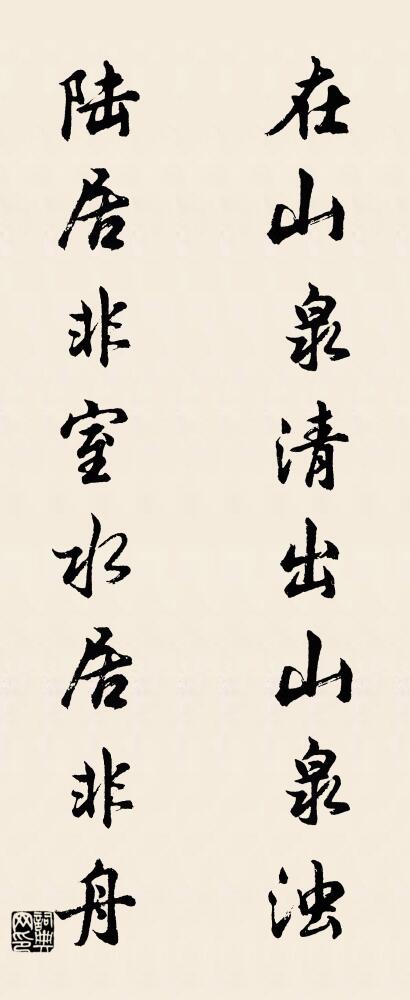 在山泉清出山泉浊
陆居非室水居非舟
詞典网印